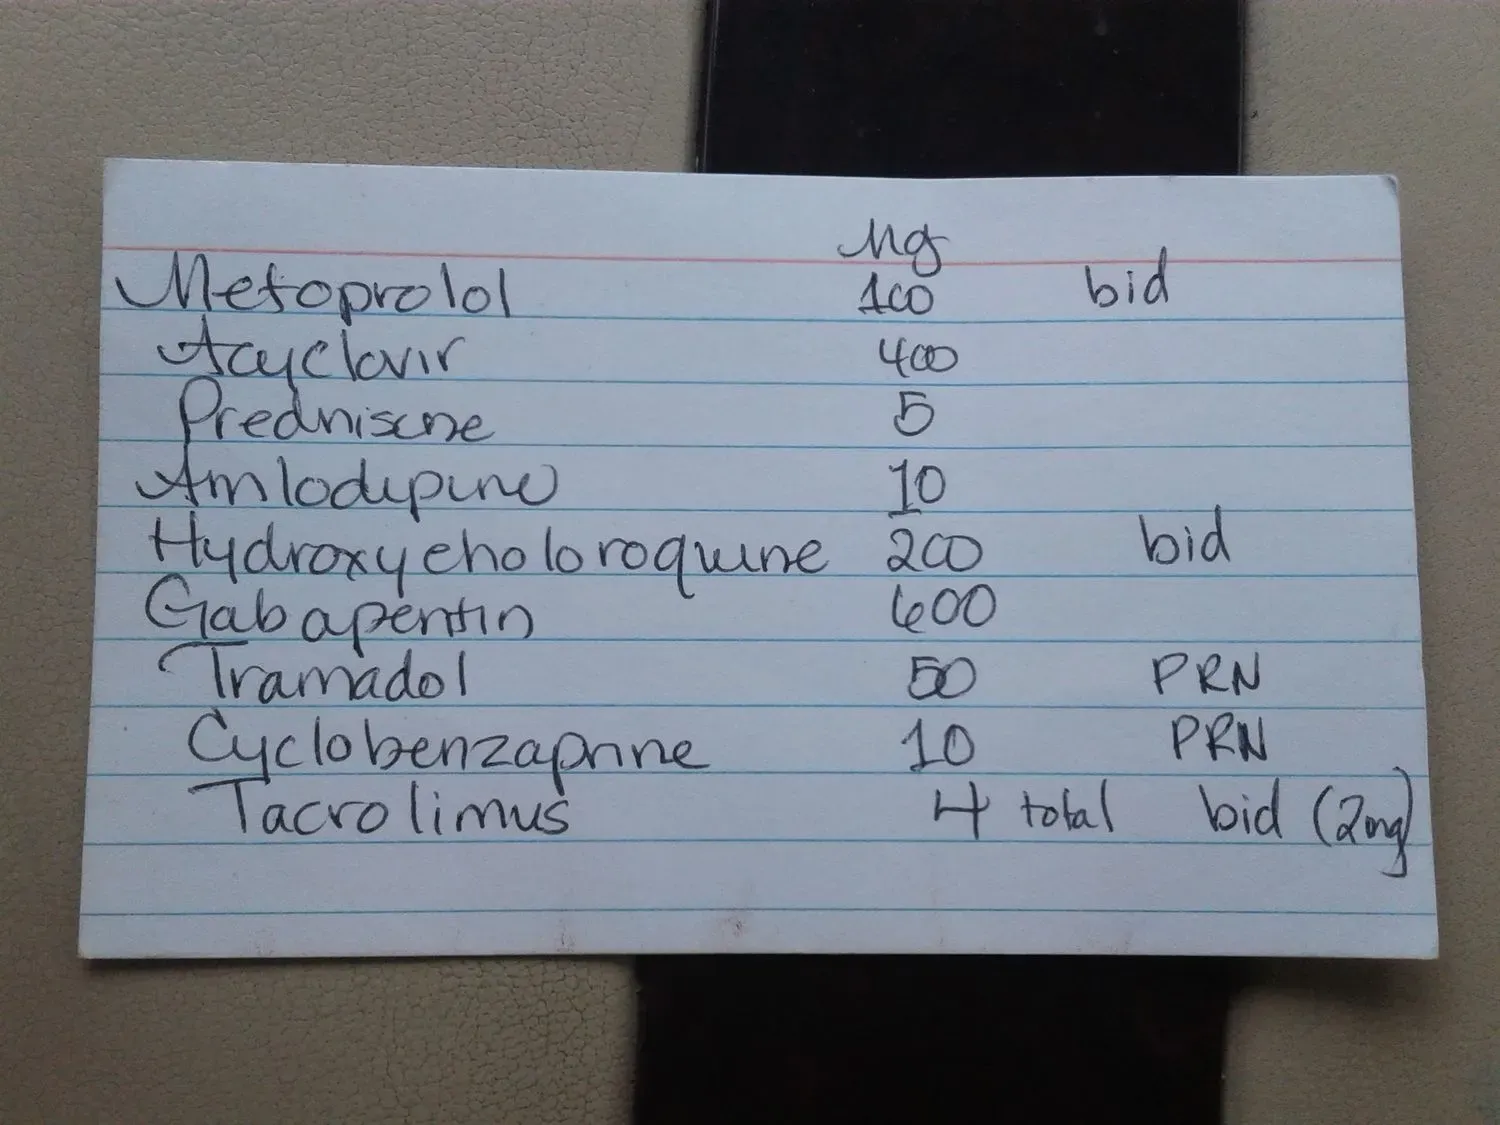 Mg
Metoprolol 100 bid
Acyclovir 400
Prednisone 5
Amlodipine 10
Hydroxycholoroquine 200 bid
Gabapentin 600
Tramadol 50 PRN
Cyclobenzaprine 10 PRN
Tacrolimus 4 total bid (2mg)